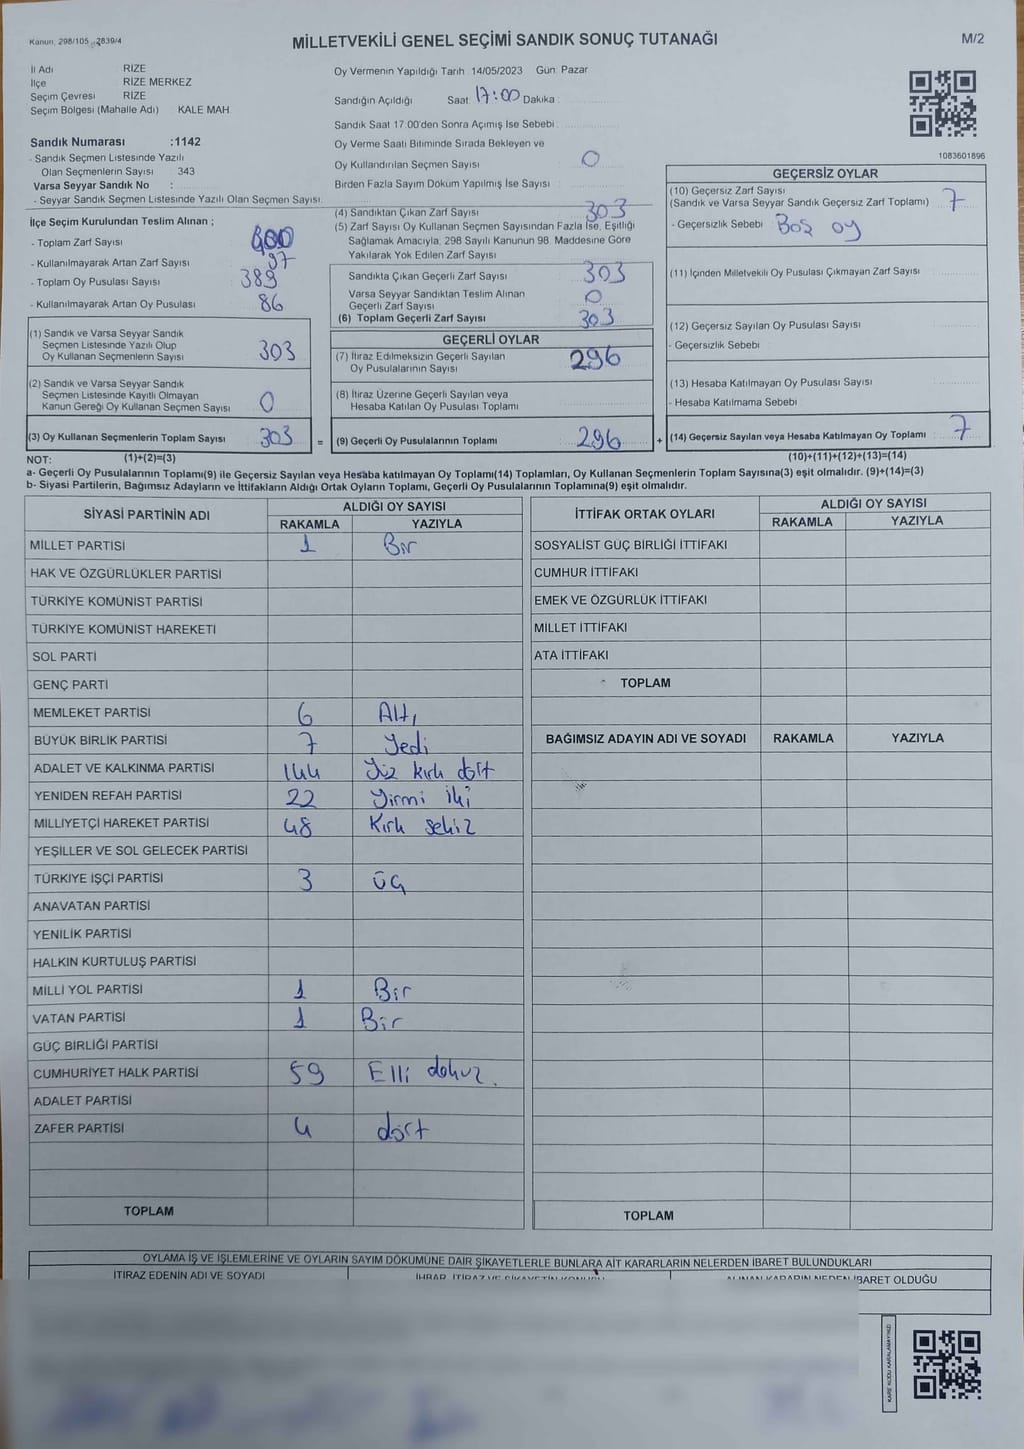 Kanun, 298/105, 2839/4
MİLLETVEKİLİ GENEL SEÇİMİ SANDIK SONUÇ TUTANAĞI
M/2
İl Adı RİZE
İlçe RİZE MERKEZ
Seçim Çevresi RİZE
Seçim Bölgesi (Mahalle Adı) : KALE MAH
Sandık Numarası :1142
- Sandık Seçmen Listesinde Yazılı
Olan Seçmenlerin Sayısı : 343
Varsa Seyyar Sandık No :
- Seyyar Sandık Seçmen Listesinde Yazılı Olan Seçmen Sayısı:
İlçe Seçim Kurulundan Teslim Alınan ;
- Toplam Zarf Sayısı 400
- Kullanılmayarak Artan Zarf Sayısı 97
- Toplam Oy Pusulası Sayısı 389
- Kullanılmayarak Artan Oy Pusulası 86
(1) Sandık ve Varsa Seyyar Sandık
Seçmen Listesinde Yazılı Olup
Oy Kullanan Seçmenlerin Sayısı 303
(2) Sandık ve Varsa Seyyar Sandık
Seçmen Listesinde Kayıtlı Olmayan
Kanun Gereği Oy Kullanan Seçmen Sayısı 0
(3) Oy Kullanan Seçmenlerin Toplam Sayısı 303 =
Oy Vermenin Yapıldığı Tarih 14/05/2023 Gün: Pazar
Sandığın Açıldığı Saat 17:00 Dakika :
Sandık Saat 17.00'den Sonra Açımış İse Sebebi :
Oy Verme Saati Bitiminde Sırada Bekleyen ve
Oy Kullandırılan Seçmen Sayısı 0
Birden Fazla Sayım Döküm Yapılmış İse Sayısı :
(4) Sandıktan Çıkan Zarf Sayısı 303
(5) Zarf Sayısı Oy Kullanan Seçmen Sayısından Fazla İse, Eşitliği
Sağlamak Amacıyla, 298 Sayılı Kanunun 98. Maddesine Göre
Yakılarak Yok Edilen Zarf Sayısı
Sandıkta Çıkan Geçerli Zarf Sayısı 303
Varsa Seyyar Sandıktan Teslim Alınan
Geçerli Zarf Sayısı 0
(6) Toplam Geçerli Zarf Sayısı 303
GEÇERLİ OYLAR
(7) İtiraz Edilmeksizin Geçerli Sayılan
Oy Pusulalarının Sayısı 296
(8) İtiraz Üzerine Geçerli Sayılan veya
Hesaba Katılan Oy Pusulası Toplamı
(9) Geçerli Oy Pusulalarının Toplamı 296 +
1083601896
GEÇERSİZ OYLAR
(10) Geçersiz Zarf Sayısı
(Sandık ve Varsa Seyyar Sandık Geçersiz Zarf Toplamı) 7
- Geçersizlik Sebebi Boş oy
(11) İçinden Milletvekili Oy Pusulası Çıkmayan Zarf Sayısı
(12) Geçersiz Sayılan Oy Pusulası Sayısı
- Geçersizlik Sebebi :
(13) Hesaba Katılmayan Oy Pusulası Sayısı
- Hesaba Katılmama Sebebi :
(14) Geçersiz Sayılan veya Hesaba Katılmayan Oy Toplamı 7
NOT: (1)+(2)=(3) (10)+(11)+(12)+(13)=(14)
a- Geçerli Oy Pusulalarının Toplamı(9) ile Geçersiz Sayılan veya Hesaba katılmayan Oy Toplamı(14) Toplamları, Oy Kullanan Seçmenlerin Toplam Sayısına(3) eşit olmalıdır. (9)+(14)=(3)
b- Siyasi Partilerin, Bağımsız Adayların ve İttifakların Aldığı Ortak Oyların Toplamı, Geçerli Oy Pusulalarının Toplamına(9) eşit olmalıdır.
SİYASİ PARTİNİN ADI ALDIĞI OY SAYISI
RAKAMLA YAZIYLA
MİLLET PARTİSİ 1 Bir
HAK VE ÖZGÜRLÜKLER PARTİSİ
TÜRKİYE KOMÜNİST PARTİSİ
TÜRKİYE KOMÜNİST HAREKETİ
SOL PARTİ
GENÇ PARTİ
MEMLEKET PARTİSİ 6 Altı
BÜYÜK BİRLİK PARTİSİ 7 Yedi
ADALET VE KALKINMA PARTİSİ 144 Yüz kırk dört
YENİDEN REFAH PARTİSİ 22 Yirmi iki
MİLLİYETÇİ HAREKET PARTİSİ 48 Kırk sekiz
YEŞİLLER VE SOL GELECEK PARTİSİ
TÜRKİYE İŞÇİ PARTİSİ 3 üç
ANAVATAN PARTİSİ
YENİLİK PARTİSİ
HALKIN KURTULUŞ PARTİSİ
MİLLİ YOL PARTİSİ 1 Bir
VATAN PARTİSİ 1 Bir
GÜÇ BİRLİĞİ PARTİSİ
CUMHURİYET HALK PARTİSİ 59 Elli dokuz
ADALET PARTİSİ
ZAFER PARTİSİ 4 dört
TOPLAM
İTTİFAK ORTAK OYLARI ALDIĞI OY SAYISI
RAKAMLA YAZIYLA
SOSYALİST GÜÇ BİRLİĞİ İTTİFAKI
CUMHUR İTTİFAKI
EMEK VE ÖZGÜRLÜK İTTİFAKI
MİLLET İTTİFAKI
ATA İTTİFAKI
TOPLAM
BAĞIMSIZ ADAYIN ADI VE SOYADI RAKAMLA YAZIYLA
TOPLAM
OYLAMA İŞ VE İŞLEMLERİNE VE OYLARIN SAYIM DÖKÜMÜNE DAİR ŞİKAYETLERLE BUNLARA AİT KARARLARIN NELERDEN İBARET BULUNDUKLARI
İTİRAZ EDENİN ADI VE SOYADI
İBARET OLDUĞU
KARE KODU KARALAMAYINIZ!